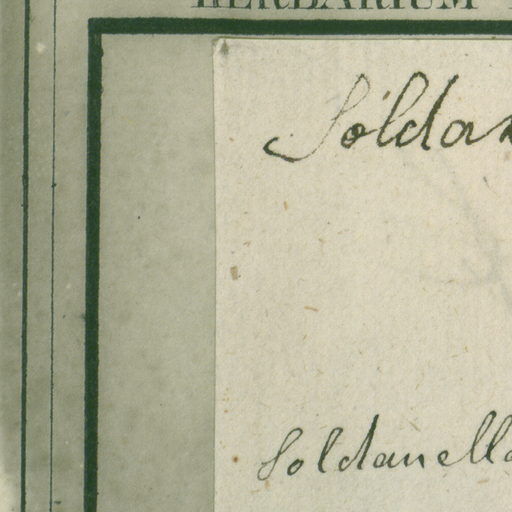 HERBARIUM
Soldan
Soldanella